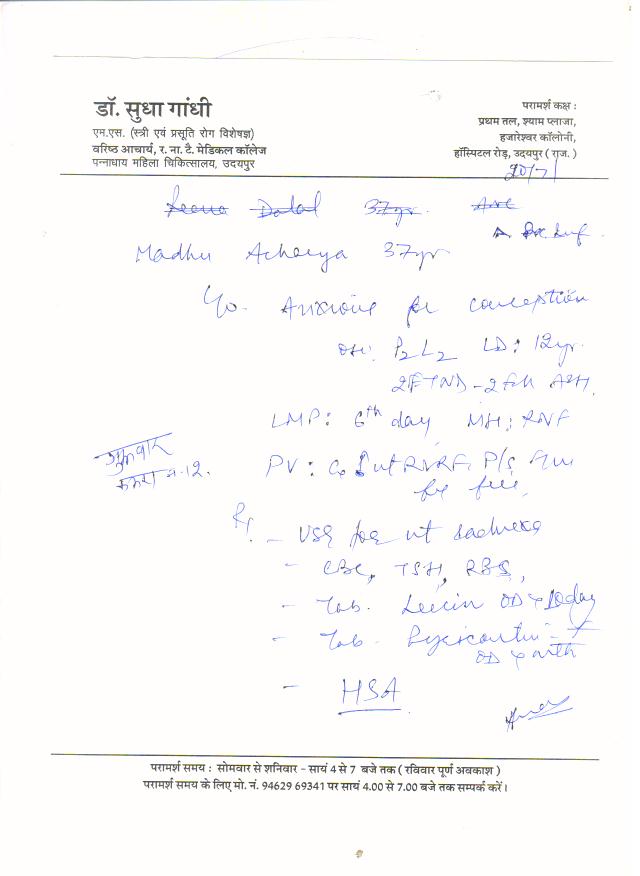 डॉ. सुधा गांधी
एम.एस. (स्त्री एवं प्रसूति रोग विशेषज्ञ)
वरिष्ठ आचार्य, र. ना. टै. मेडिकल कॉलेज
पन्नाधाय महिला चिकित्सालय, उदयपुर
परामर्श कक्ष :
प्रथम तल, श्याम प्लाजा,
हजारेश्वर कॉलोनी,
हॉस्पिटल रोड़, उदयपुर ( राज. )
20/7/
37yr.
Madhu Acharya 37yr
C/o. Anxious for conception
OH: P2L2 LD: 12yr.
2FTND -
LMP: 6th day MH: RNF
PV: P/s
शुक्रवार
कमरा न. 12.
Rx
- USG for ut
- CBC, TSH, RBS,
- Tab. OD x 10day
- Tab.
OD x
- HSA
परामर्श समय : सोमवार से शनिवार - सायं 4 से 7 बजे तक ( रविवार पूर्ण अवकाश )
परामर्श समय के लिए मो. नं. 94629 69341 पर सायं 4.00 से 7.00 बजे तक सम्पर्क करें।